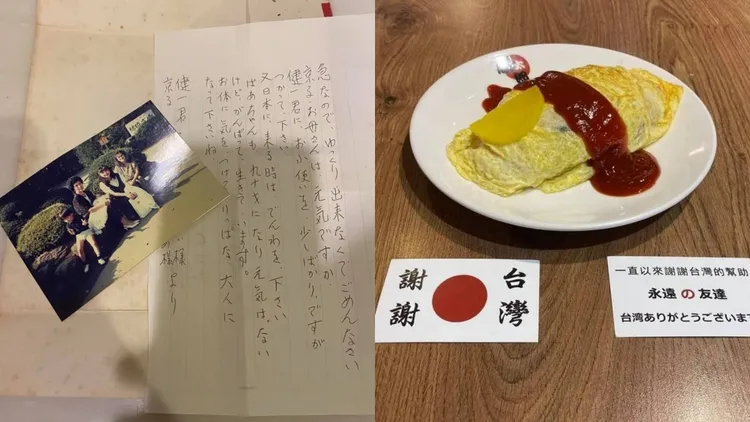 急なので、ゆっくり出来なくてごめんなさい
京子、お母さんは、元気ですか
健一君に、お小使いを少しばかり、ですが
つかって、下さい
又日本に、来る時は、でんわを、下さい
ばあちゃんも、九十才になり元気は、ない
けど、がんばって、生きています。
お体に、気をつけて、りっぱな、大人に
なって下さいね
健一君
京る
様
様 より
謝謝
台灣
一直以來謝謝台灣的幫助
永遠の友達
台湾ありがとうございま